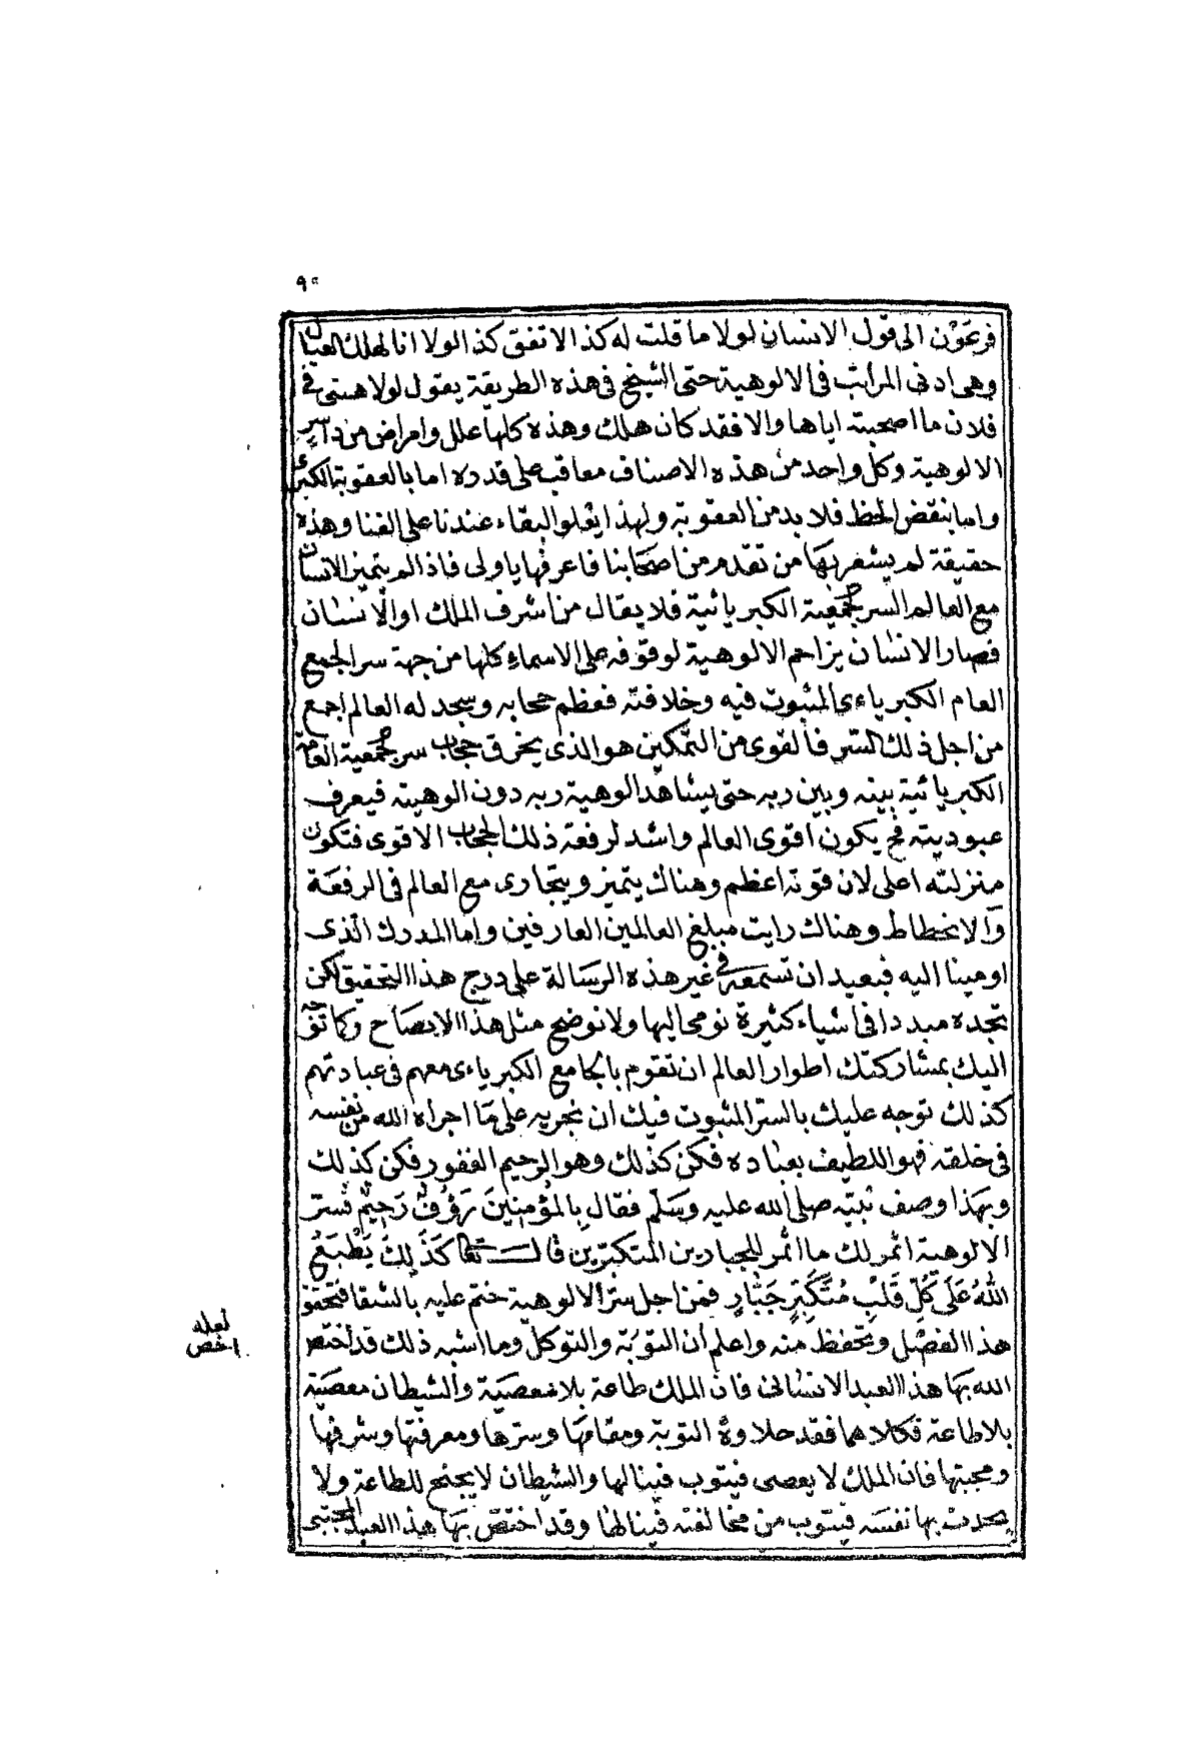 ٩٥
فرعون الى قول الانسان لولا ما قلت له كذا لاتفق كذا لولا انا لهلك العيال
وهى ادنى المراتب فى الالوهية حتى الشيخ فى هذه الطريقة يقول لولا همتى فى
فلان ما اصحبته اياها والا فقد كان هلك وهذه كلها علل وامراض من داء سر
الالوهية وكل واحد من هذه الاصناف معاقب على قدره اما بالعقوبة الكبرى
واما بنقض الحظ فلا بد من العقوبة ولهذا يعلو البقاء عندنا على الفنا وهذه
حقيقة لم يشعر بها من تقدم من اصحابنا فاعرفها يا ولى فاذا لم يتميز الانسان
مع العالم السر جمعية الكبريائية فلا يقال من اشرف الملك او الانسان
فصار الانسان يزاحم الالوهية لوقوفه على الاسماء كلها من جهة سر الجمع
العام الكبرياءى المثبوت فيه وخلافته فعظم حجابه وسجد له العالم اجمع
من اجل ذلك السر فالقوى من التمكين هو الذى يخرق حجاب سر جمعية العام
الكبريائية بينه وبين ربه حتى يشاهد الوهية ربه دون الوهيته فيعرف
عبوديته فح يكون اقوى العالم واشد لرفعة ذلك الحجاب الاقوى فتكون
منزلته اعلى لان قوته اعظم وهناك يتميز ويتجارى مع العالم فى الرفعة
والانحطاط وهناك رايت مبلغ العالمين العارفين واما المدرك الذى
اومينا اليه فبعيد ان تسمعه فى غير هذه الرسالة على درج هذا التحقيق لكن
تجده مبددا فى اشياء كثيرة نومى اليها ولا نوضح مثل هذا الايضاح وكما توجه
اليك بمشاركتك اطوار العالم ان تقوم بالجامع الكبرياءى معهم فى عبادتهم
كذلك توجه عليك بالسر المثبوت فيك ان تجريه على ما اجراه الله من نفسه
فى خلقه فهو اللطيف بعباده فكن كذلك وهو الرحيم الغفور فكن كذلك
وبهذا وصف نبيّه صلى الله عليه وسلم فقال بِالمؤمِنِينَ رَؤُوفٌ رَحِيمٌ فسرّ
الالوهية اثمر لك ما اثمر للجبارين المتكبّرين قال تعا كَذَلِكَ يَطْبَعُ
اللهُ عَلَى كُلِّ قَلْبِ مُتَكَبِّرٍ جَبَّارٍ فمن اجل سرّ الالوهية ختم عليه بالشقا فتحقق
هذا الفصل وتحفظ منه واعلم ان التوبة والتوكل وما اشبه ذلك قد اختص
الله بها هذا العبد الانسانى فان الملك طاعة بلا معصية والشيطان معصية
بلا طاعة فكلاهما فقد حلاوة التوبة ومقامها وسرّها ومعرفتها وشرفها
ومحبتها فان الملك لا يعصى فيتوب فينالها والشيطان لا يجنح للطاعة ولا
يحدث بها نفسه فيتوب من مخالفته فينالها وقد اختص بها هذا العبد المجتبى
لعله
اخص